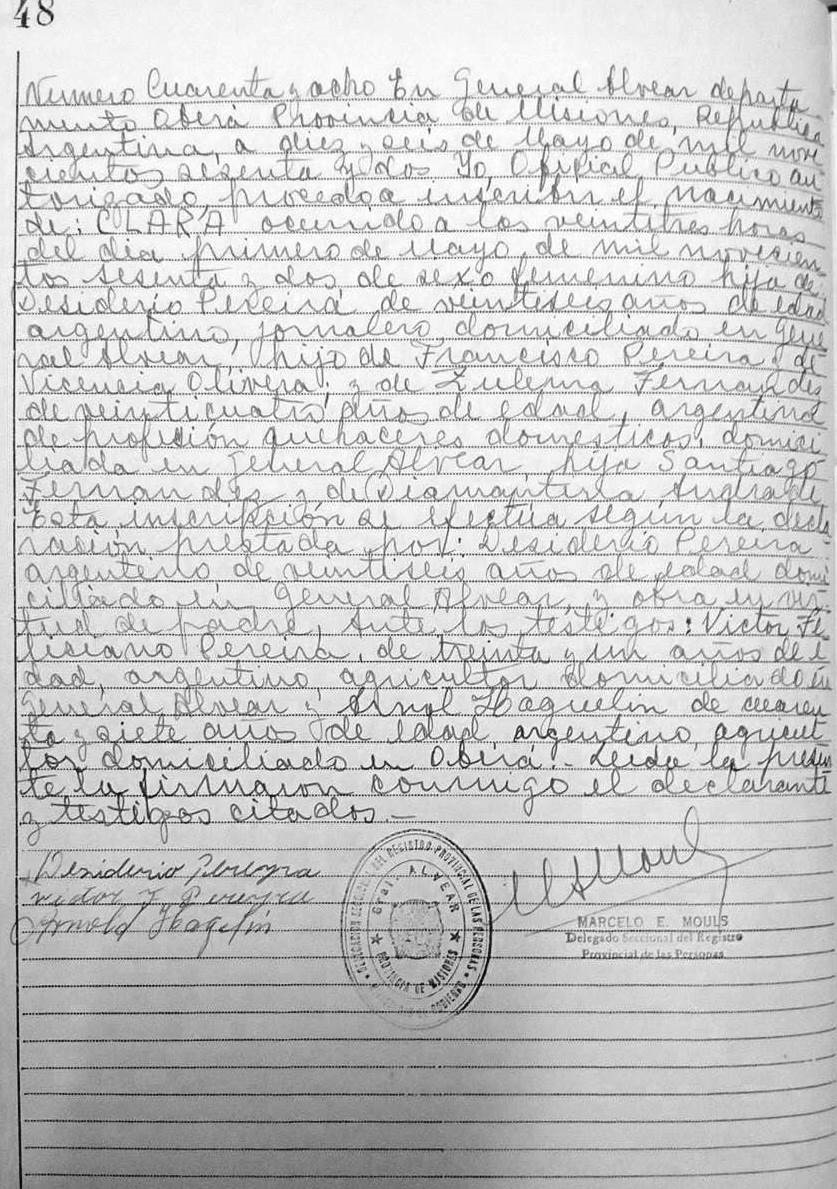 48
Numero Cuarenta y ocho En General Alvear departa
mento Oberá Provincia de Misiones, Republica
Argentina, a diez y seis de Mayo de mil nove
cientos sesenta y dos Yo, Oficial Publico au
torizado, procedo a inscribir el nacimiento
de: CLARA ocurrido a las veintitres horas
del dia primero de Mayo de mil novecien
tos sesenta y dos de sexo femenino hija de
Desiderio Pereira de veintiseis años de edad
argentino, jornalero domiciliado en Gene
ral Alvear, hijo de Francisco Pereira y de
Vicencia Olivera; y de Zulema Fernandes
de veinticuatro años de edad, argentina
de profesión quehaceres domesticos, domici
liada en General Alvear, hija Santiago
Fernandez y de Diamantina Andrade
Esta inscripción se efectua según la decla
ración prestada por: Desiderio Pereira
argentino de veintiseis años de edad domi
ciliado en General Alvear, y obra en vir
tud de padre, Ante los testigos: Victor Fe
liciano Pereira, de treinta y un años de e
dad, argentino, agricultor domiciliado en
General Alvear y Arnol Haguelin de cuaren
ta y siete años de edad argentino, agricul
tor domiciliado en Oberá.- Leida la presen
te la firmaron conmigo el declarante
y testigos citados.-
Desiderio Pereyra
victor F Pereyra
Arnoldo Hagelin
DELEGACION SECCIONAL DEL REGISTRO PROVINCIAL DE LAS PERSONAS
GRAL. ALVEAR
PROVINCIA DE MISIONES
MINISTERIO DE GOBIERNO
MARCELO E. MOULS
Delegado Seccional del Registro
Provincial de las Personas